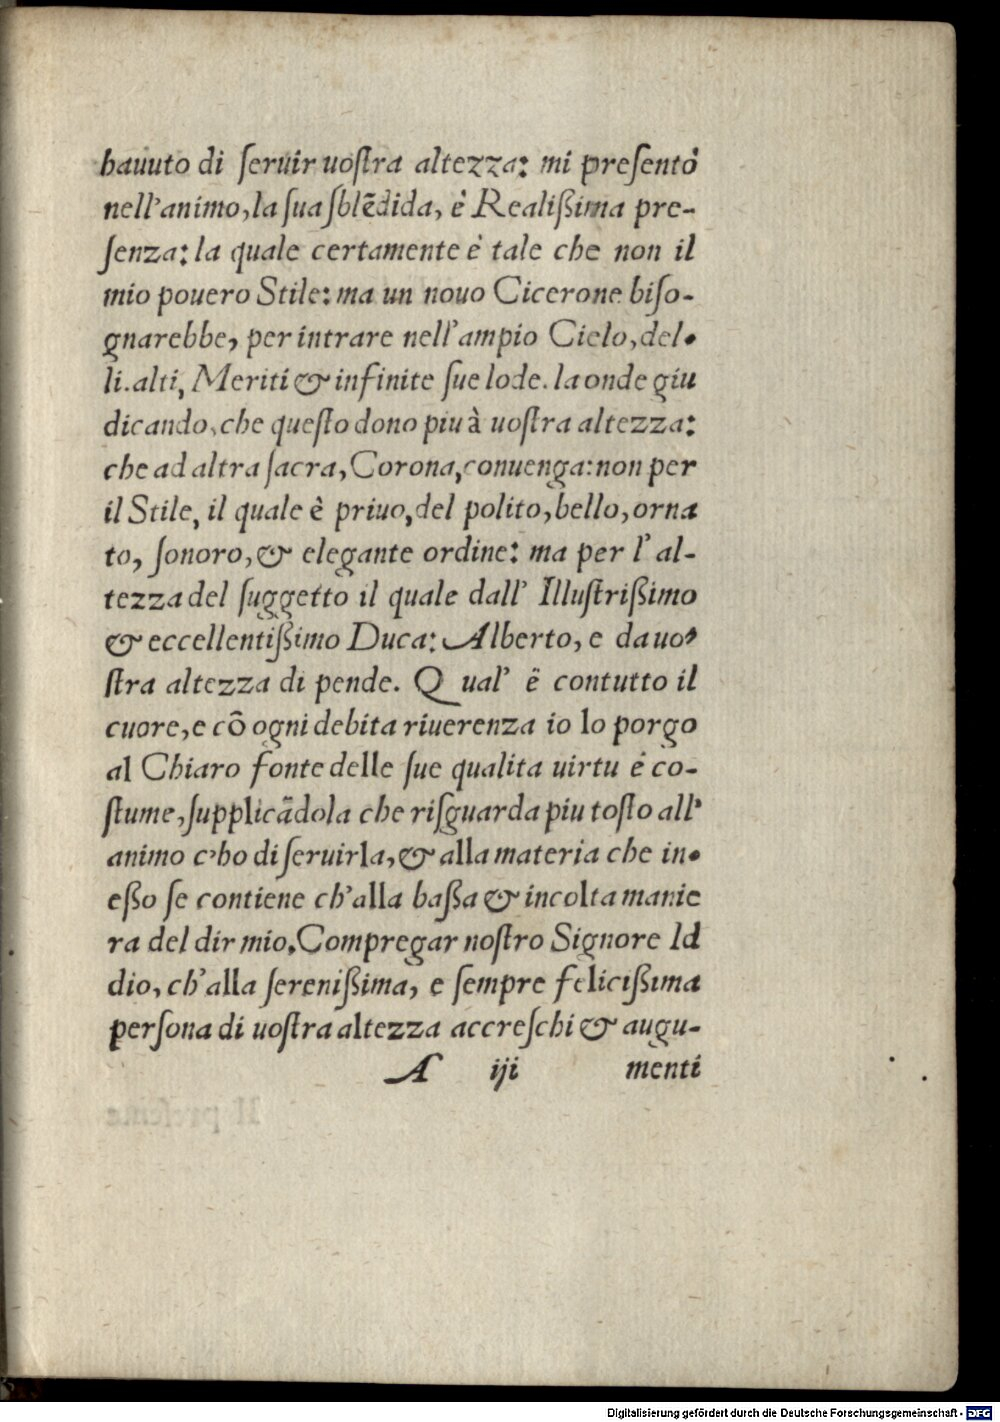 hauuto di ſeruir uoſtra altezza: mi preſentò
nell'animo, la ſua ſblēdida, è Realißima pre-
ſenza: la quale certamente è tale che non il
mio pouero Stile: ma un nouo Cicerone biſo-
gnarebbe, per intrare nell'ampio Cielo, del.
li. alti, Meriti & infinite ſue lode. la onde giu
dicando, che queſto dono piu à uoſtra altezza:
che ad altra ſacra, Corona, conuenga: non per
il Stile, il quale è priuo, del polito, bello, orna
to, ſonoro, & elegante ordine: ma per l'al-
tezza del ſuggetto il quale dall' Illuſtrißimo
& eccellentißimo Duca: Alberto, e da uo'
ſtra altezza di pende. Q ual' ë contutto il
cuore, e cō ogni debita riuerenza io lo porgo
al Chiaro fonte delle ſue qualita uirtu é co-
ſtume, ſupplicādola che riſguarda piu toſto all'
animo c'ho di ſeruirla, & alla materia che in.
eßo ſe contiene ch'alla baßa & incolta manie
ra del dir mio. Compregar noſtro Signore Id
dio, ch'alla ſerenißima, e ſempre felicißima
perſona di uoſtra altezza accreſchi & augu-
A iij menti
Il preſente
Digitalisierung gefördert durch die Deutsche Forschungsgemeinschaft - DFG